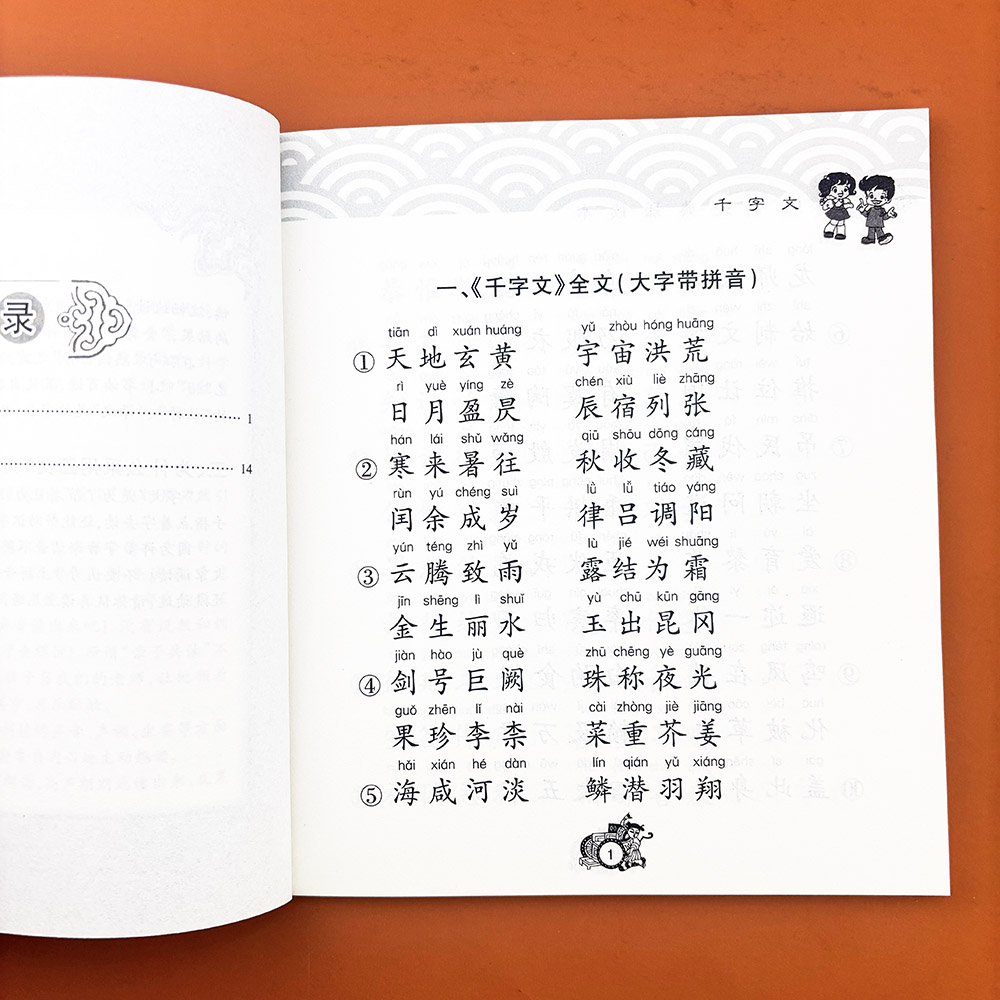 录
1
14
千字文
一、《千字文》全文(大字带拼音)
tiān dì xuán huáng yǔ zhòu hóng huāng
①天地玄黄 宇宙洪荒
rì yuè yíng zè chén xiù liè zhāng
日月盈昃 辰宿列张
hán lái shǔ wǎng qiū shōu dōng cáng
②寒来暑往 秋收冬藏
rùn yú chéng suì lǜ lǚ tiáo yáng
闰余成岁 律吕调阳
yún téng zhì yǔ lù jié wéi shuāng
③云腾致雨 露结为霜
jīn shēng lì shuǐ yù chū kūn gāng
金生丽水 玉出昆冈
jiàn hào jù què zhū chēng yè guāng
④剑号巨阙 珠称夜光
guǒ zhēn lǐ nài cài zhòng jiè jiāng
果珍李柰 菜重芥姜
hǎi xián hé dàn lín qián yǔ xiáng
⑤海咸河淡 鳞潜羽翔
1